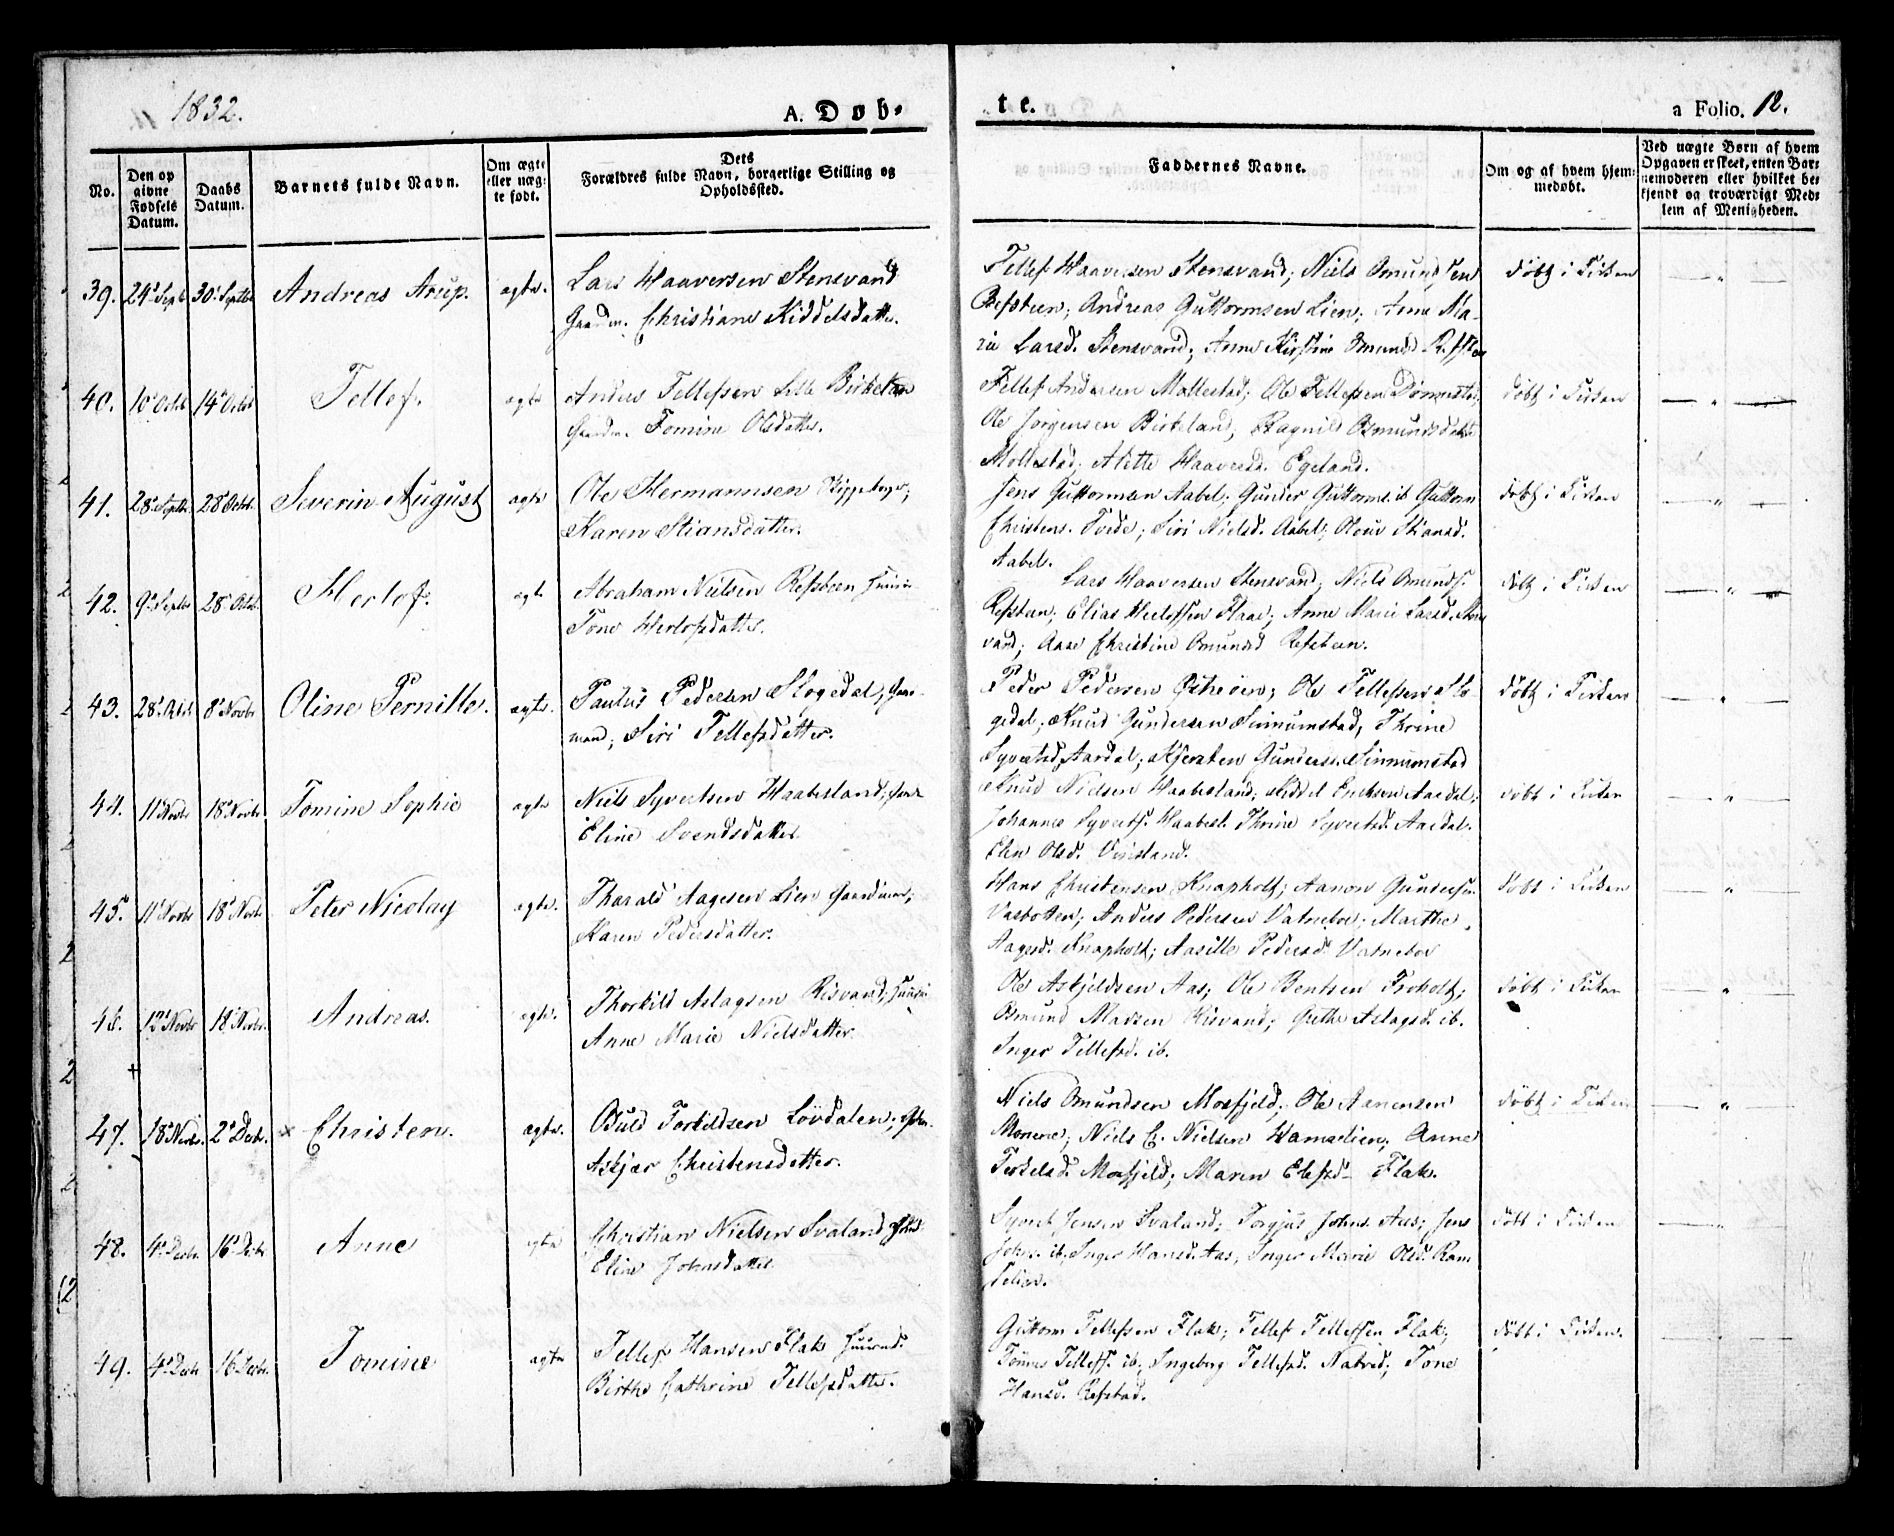 1832.
A. Døb-
te.
a Folio. 12.
No.
Den op
givne
Fødsels
Datum.
Daabs
Datum.
Barnets fulde Navn.
Om ægte
eller uæg-
te født.
Dets
Forældres fulde Navn, borgerlige Stilling og
Opholdssted.
Faddernes Navne.
Om og af hvem hjem-
medøbt.
Ved uægte Børn af hvem
Opgaven er skeet, enten Bar-
nemoderen eller hvilket be-
kjendt og troværdigt Med-
lem af Menigheden.
39. 24. Sept 30. Septbr Andreas Arup. ægte.
Lars Haaversen Stensvand
Gaardm. Christiane Kiddelsdatter.
Tellef Haaversen Stensvand; Niels Omundsen
Refsteen; Andreas Guttormsen Lien; Anne Ma-
rie Larsd. Stensvand; Anne Kirstine Omundsd. Refsteen
døbt i Kirken
40. 10. Octb 14. Octb Tellef. ægte
Anders Tellefsen Lille Birkeland
Gaardm. Tomine Olsdatter.
Tellef Andersen Mollestad; Ole Tellefsen
Ole Jørgensen Birkeland; Ragnild Osmundsdatter
Mollestad; Alette Haaversd. Egeland.
døbt i Kirken
41. 28. Septbr. 28. Octbr. Severin August ægte
Ole Hermannsen
Karen Stiansdatter.
Jens Guttormsen Aabel; Gunder Guttorms. ib Guttorm
Christens. Tvede; Siri Nielsd. Aabel; Stiansd.
Aabel.
døbt i Kirken
42. 9. Septbr 28. Octb. Herlof. ægte
Abraham Nielsen Refsteen
Tone Herlofsdatter.
Lars Haaversen Stensvand; Niels Omunds.
Refsteen; Elias Flaae; Anne Marie Larsd. Stens
vand; Aase Christine Omundsd Refsteen.
døbt i Kirken
43. 28. Octb. 8. Novbr Oline Pernille. ægte.
Paulus Pedersen Slogedal; Gaar-
mand; Siri Tellefsdatter.
Peder Pedersen; Ole Tellefsen Slo
gedal; Knud Gundersen Sinnumstad; Thrine
Syvertsd. Aardal; Kjersten Gundersd. Sinnumstad
døbt i Kirken
44. 11. Novbr 18. Novbr Tomine Sophie ægte
Niels Syvertsen Haabesland;
Eline Svendsdatter
Knud Nielsen Haabesland; Kiddel Ericksen Aardal;
Johannes Syverts. Haabesl. Thrine Syvertsd. Aardal.
Elen Olsd.
døbt i Kirken
45. 11. Novbr 18. Novbr Peter Nicolay ægte.
Tharald Aagesen Lien Gaardmand;
Karen Pedersdatter.
Hans Christensen Knapholt; Aanon Gundersen
Vasbotten; Anders Pedersen Vatneboe; Marthe
Aagesd. Knapholt; Aasille Pedersd. Vatneboe
døbt i Kirken
46. 13. Novbr 18. Novbr. Andreas. ægte.
Thorkild Aslagsen Risvand;
Anne Marie Nielsdatter.
Ole Askjeldsen Aas; Ole Bentsen Froholt;
Osmund Madsen Risvand; Grethe Aslagsd. ib.
Inger Tellefsd. ib.
døbt i Kirken
47. 18. Novbr. 2. Decbr. × Christen. ægte.
Torkildsen Løvdalen;
Askjær Christensdatter.
Niels Omundsen Mosfjeld; Ole Aanensen
Monene; Niels C. Nielsen; Anne
Terkelsd. Mosfjeld; Maren Elefsd. Flak.
døbt i Kirken
48. 4. Decbr. 16. Decbr Anne ægte
Christian Nielsen Svaland
Eline Johnsdatter
Syvert Jensen Svaland; Torgjus Johns. Aas; Jens
Johns. ib. Inger Hansd. Aas; Inger Marie Olsd. Ram
selien.
døbt i Kirken
49. 4. Decbr 16. Decbr. Tomine ægte
Tellef Hansen Flak Huusmd.
Birthe Cathrine Tellefsdatter.
Guttorm Tellefsen Flak; Tellef Tellefsen Flak;
Tønnes Tellefs. ib; Ingeborg Tellefsd. Natvid; Tone
Hansd. Refstad.
døbt i Kirken.